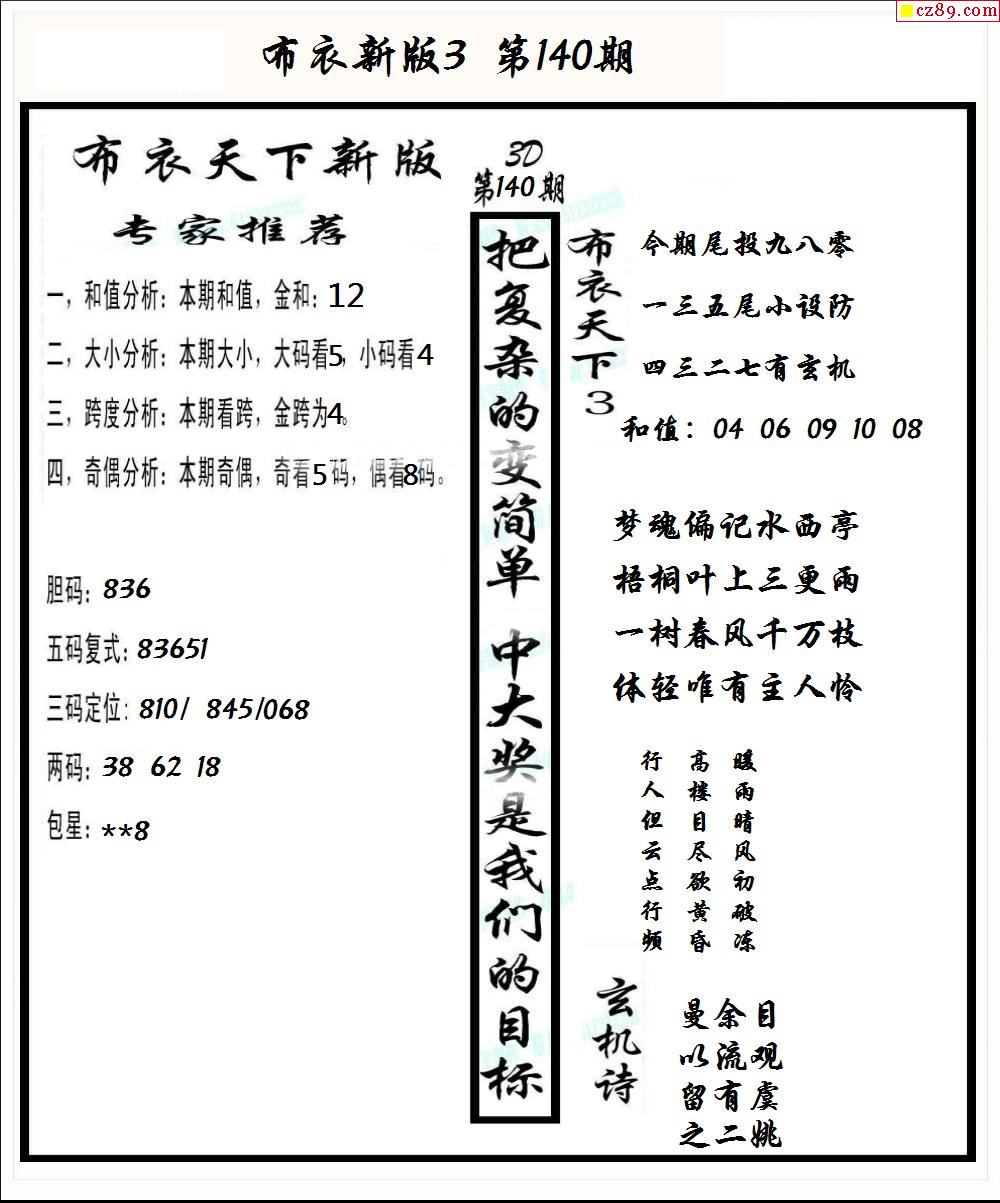 cz89.com
布衣新版3 第140期
布衣天下新版
专家推荐
一，和值分析：本期和值，金和：12
二，大小分析：本期大小，大码看5，小码看4
三，跨度分析：本期看跨，金跨为4。
四，奇偶分析：本期奇偶，奇看5码，偶看8码。
胆码：836
五码复式：83651
三码定位：810/ 845/068
两码：38 62 18
包星：**8
3D
第140期
把复杂的变简单 中大奖是我们的目标
布衣天下3
今期尾投九八零
一三五尾小设防
四三二七有玄机
和值：04 06 09 10 08
梦魂偏记水西亭
梧桐叶上三更雨
一树春风千万枝
体轻唯有主人怜
暖雨晴风初破冻
高楼目尽欲黄昏
行人但云点行频
玄机诗
目观虞姚
余流有二
曼以留之